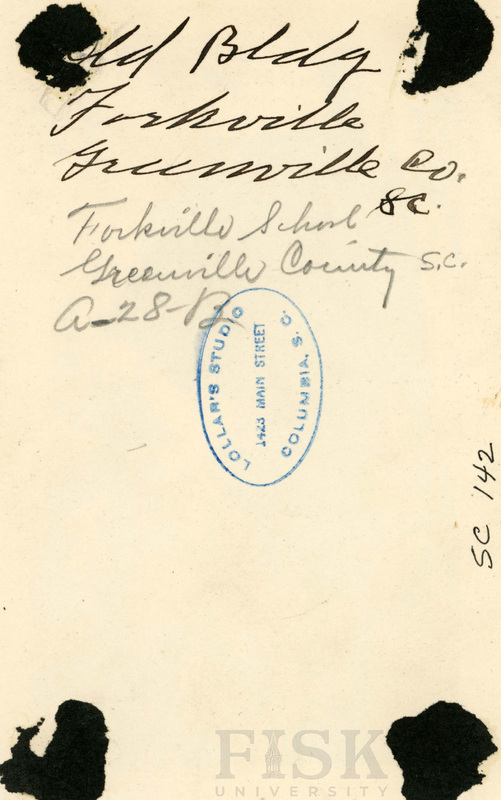 Old Bldg
Forkville
Greenville Co.
SC.
Forkville School
Greenville County S.C.
A-28-B
LOLLAR'S STUDIO
1423 MAIN STREET
COLUMBIA, S. C.
SC 142
FISK
UNIVERSITY